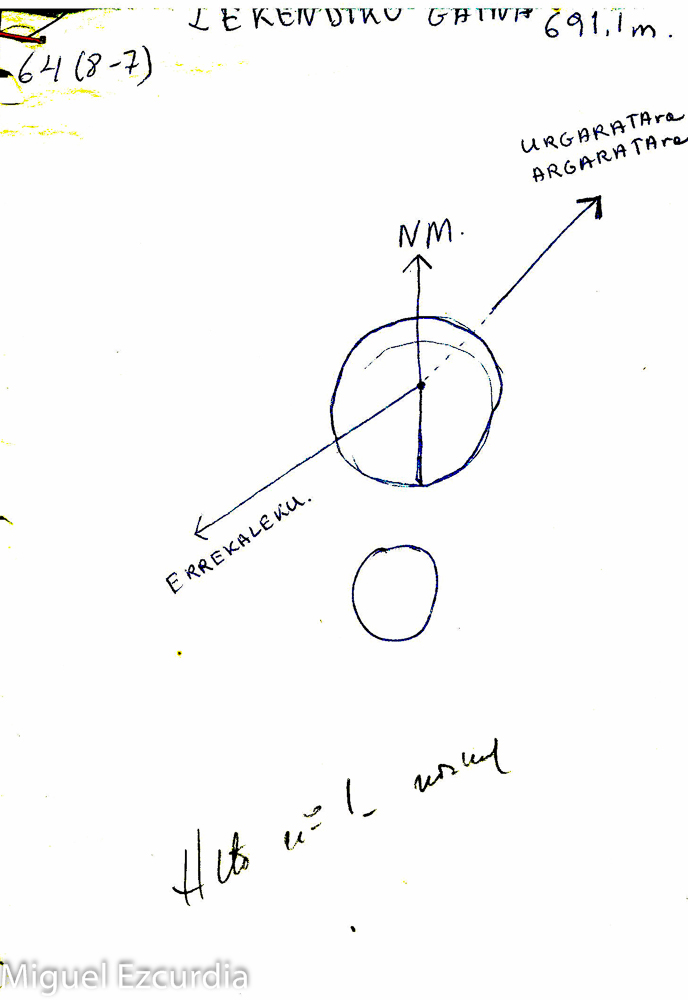 LEKENDIKO GAINA 691,1 m.
64 (8-7)
URGARATAra
ARGARATAra
NM.
ERREKALEKU.
Hito nº 1_ normal
Miguel Ezcurdia